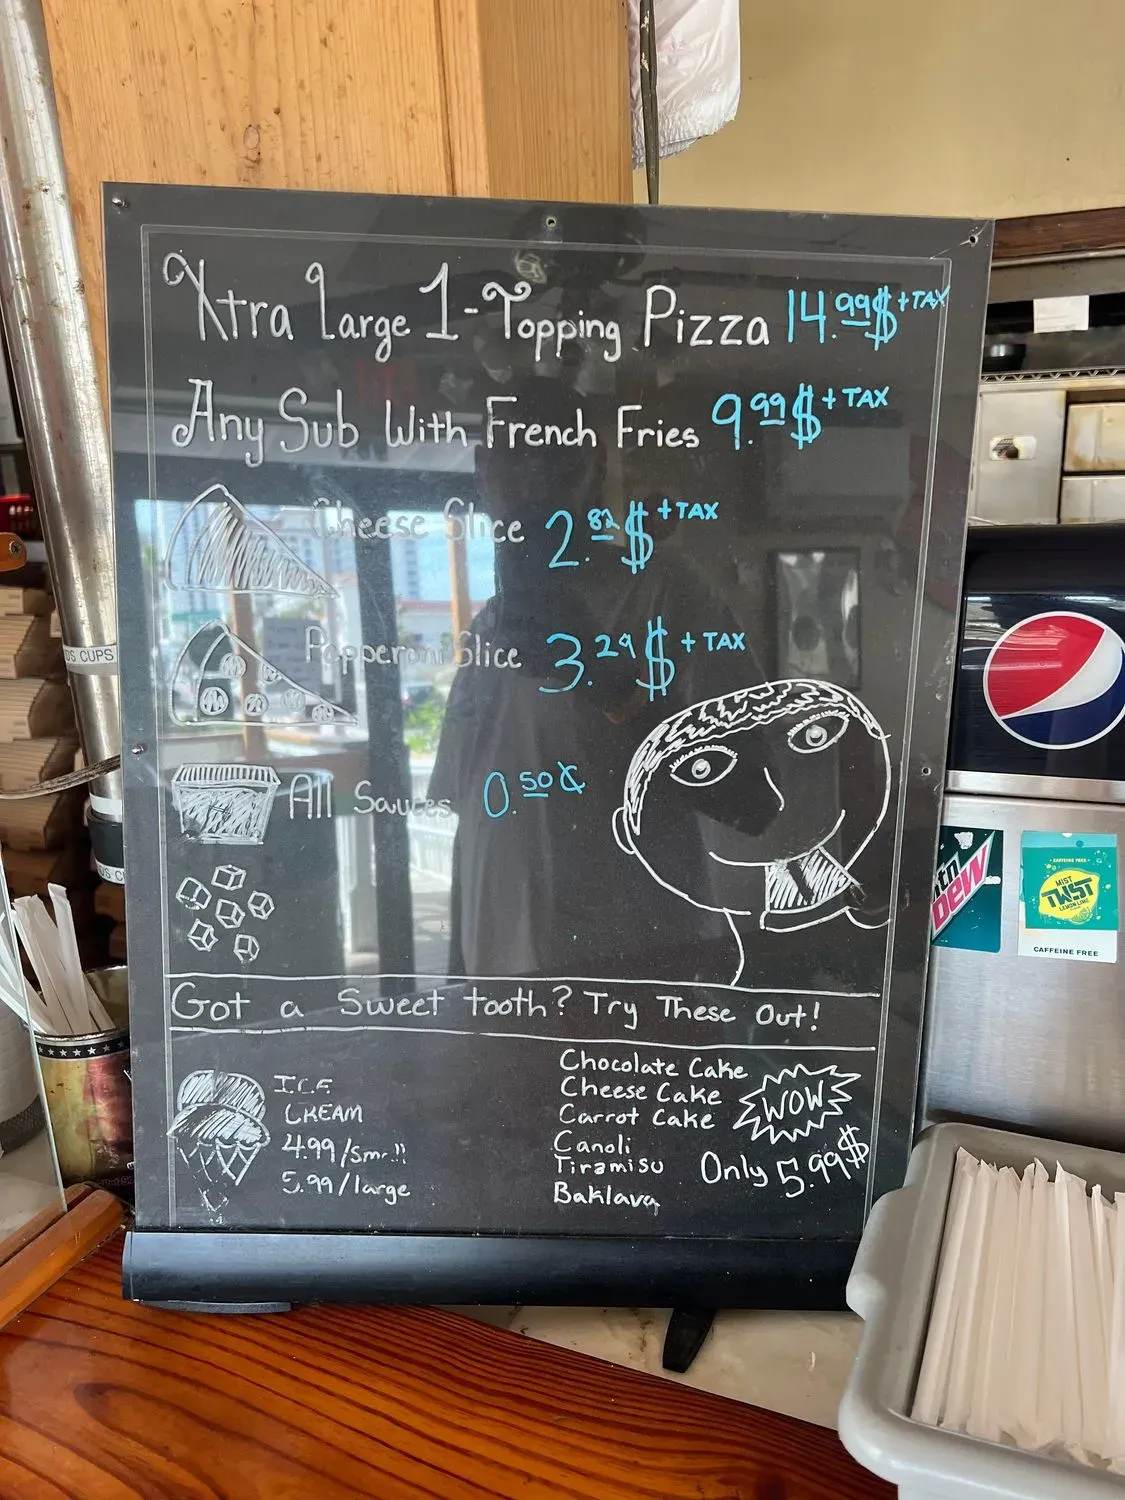 Xtra Large 1-Topping Pizza 14.99$ + TAX
Any Sub With French Fries 9.99$ + TAX
Cheese Slice 2.82$ + TAX
Pepperoni Slice 3.29$ + TAX
All Sauces 0.50¢
Got a Sweet tooth? Try These Out!
ICE
CREAM
4.99/small
5.99/large
Chocolate Cake
Cheese Cake
Carrot Cake
Canoli
Tiramisu
Baklava
WOW
Only 5.99$
DS CUPS
DS C
mtn
DEW
CAFFEINE FREE
MIST
TWST
LEMON LIME
CAFFEINE FREE